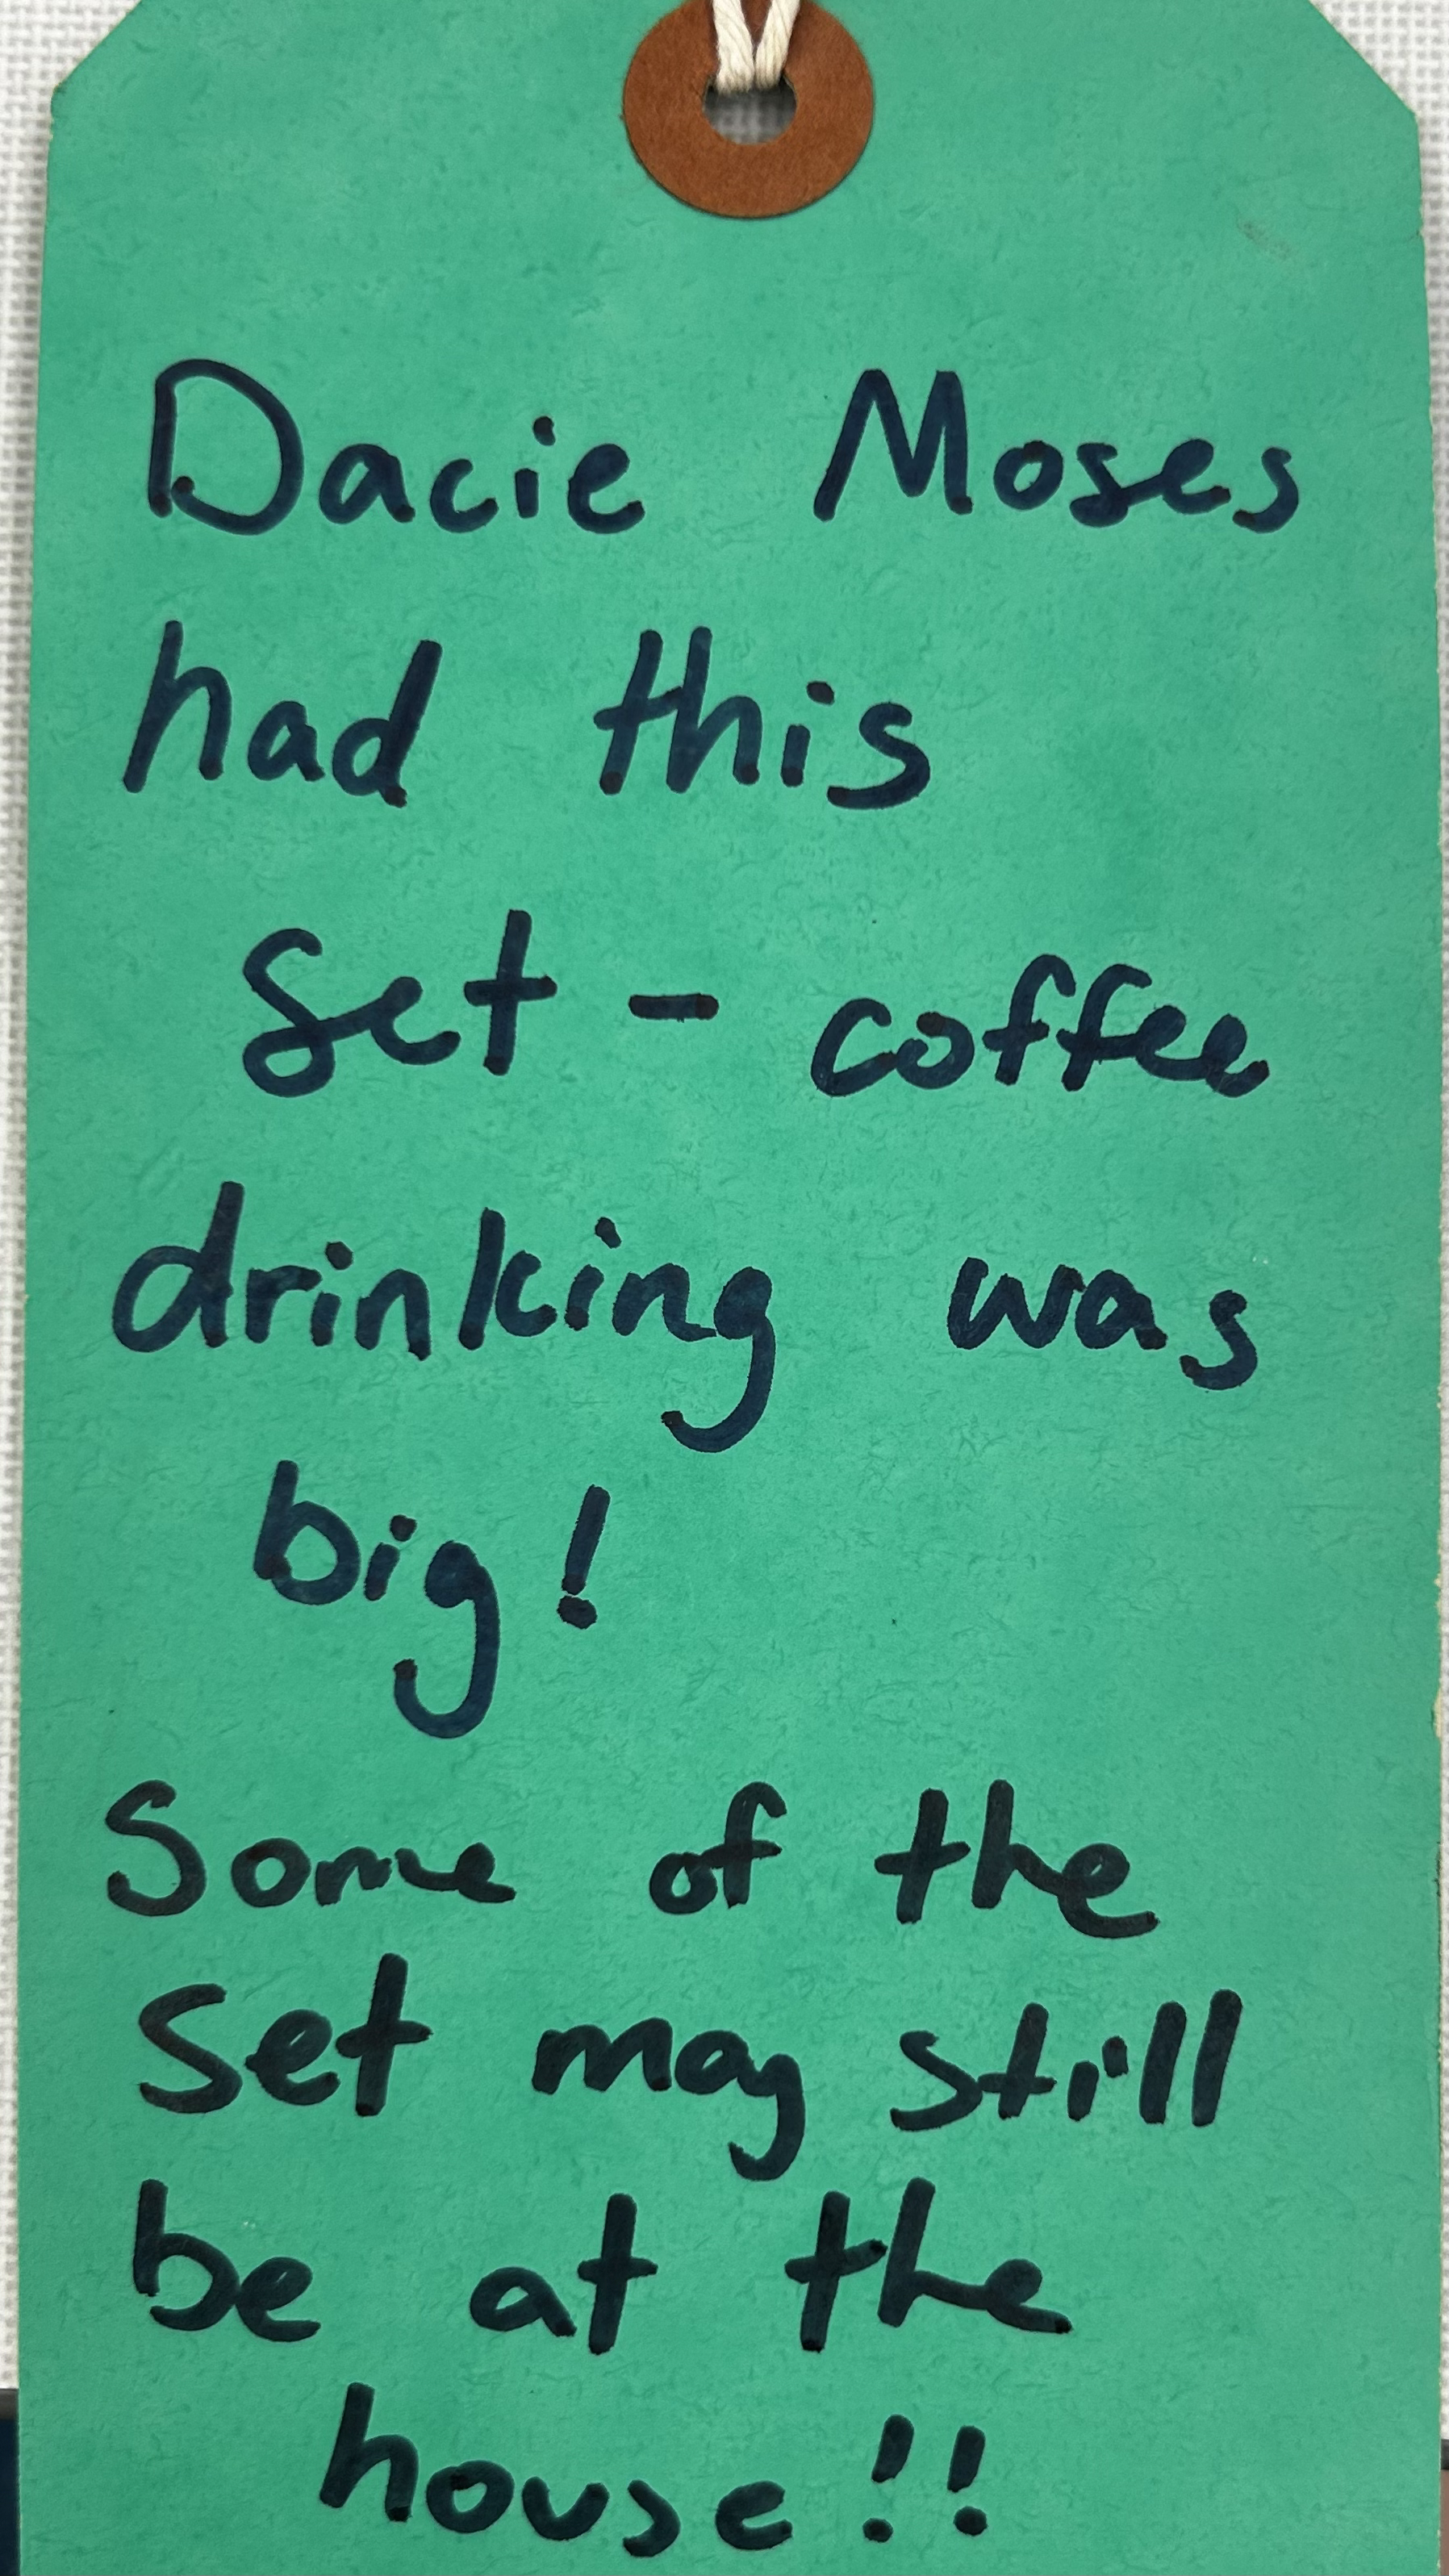 Dacie Moses
had this
set - coffee
drinking was
big!
Some of the
set may still
be at the
house!!